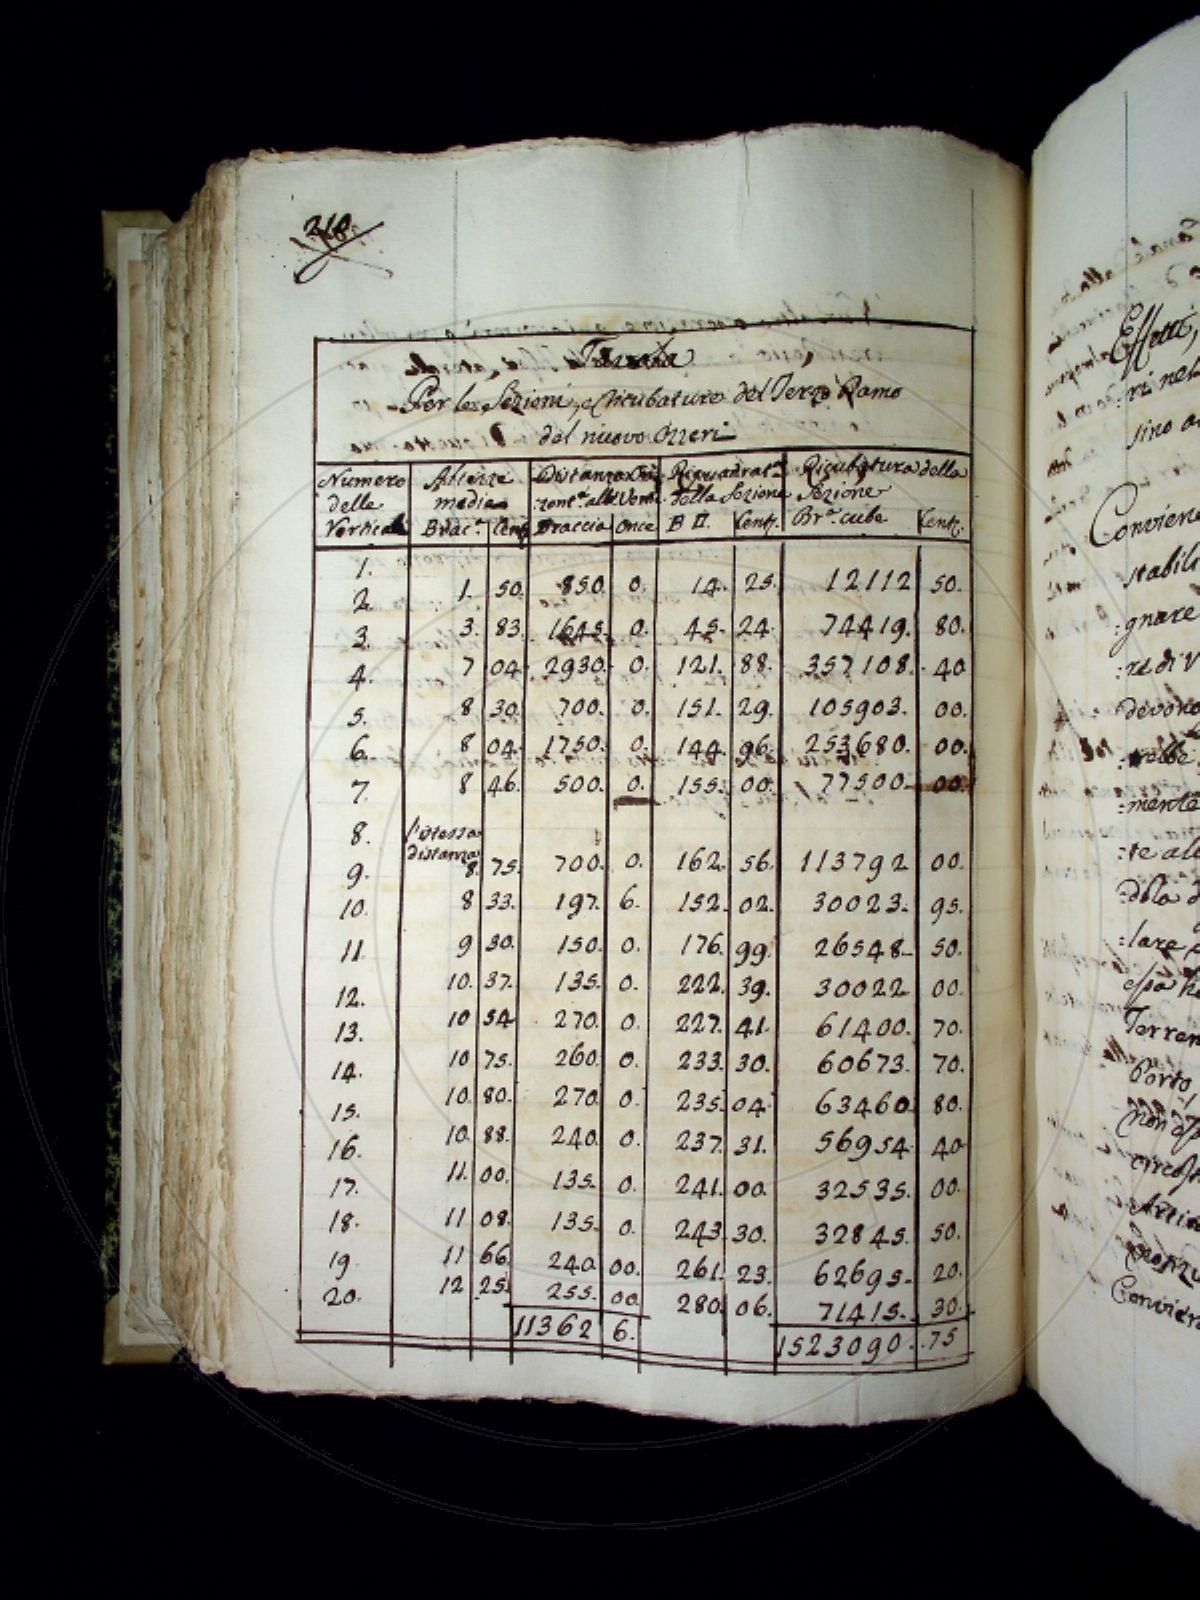 210.
Tavola
Per le Sezioni, e Ricubature del Terzo Ramo
del nuovo Ozzeri
Numero Altezze Distanza Ori Riquadrat.ª Ricubatura della
delle medie zont.e della Sezione Sezione
Verticali Brac.ª Cent. Braccia Once B □. Cent. Br.ª cube Cent.
1.
1. 50. 850. 0. 14. 25. 12112 50.
2.
3. 83. 1645. 0. 45. 24. 74419. 80.
3.
7 04. 2930. 0. 121. 88. 357108. 40
4.
8 30. 700. 0. 151. 29. 105903. 00.
5.
8 04. 1750. 0. 144. 96. 253680. 00.
6.
8 46. 500. 0. 155. 00. 77500. 00.
7.
8. l'istessa
distanza
8. 75. 700. 0. 162. 56. 113792 00.
9.
8 33. 197. 6. 152. 02. 30023. 95.
10.
9 30. 150. 0. 176. 99. 26548. 50.
11.
10. 37. 135. 0. 222. 39. 30022 00.
12.
10 54 270. 0. 227. 41. 61400. 70.
13.
10 75. 260. 0. 233. 30. 60673. 70.
14.
10. 80. 270. 0. 235. 04. 63460. 80.
15.
10. 88. 240. 0. 237. 31. 56954. 40
16.
11. 00. 135. 0. 241. 00. 32535. 00.
17.
11 08. 135. 0. 243. 30. 32845. 50.
18.
11 66. 240. 00. 261. 23. 62695. 20.
19
12 25. 255. 00. 280. 06. 71415. 30.
20.
11362 6. 1523090. 75
Effetti,
ri nel
sino a
Conviene
stabili
gnare
re di V
devono
:mente
:te al
:lare
Terren
Porto,
non
Conviene